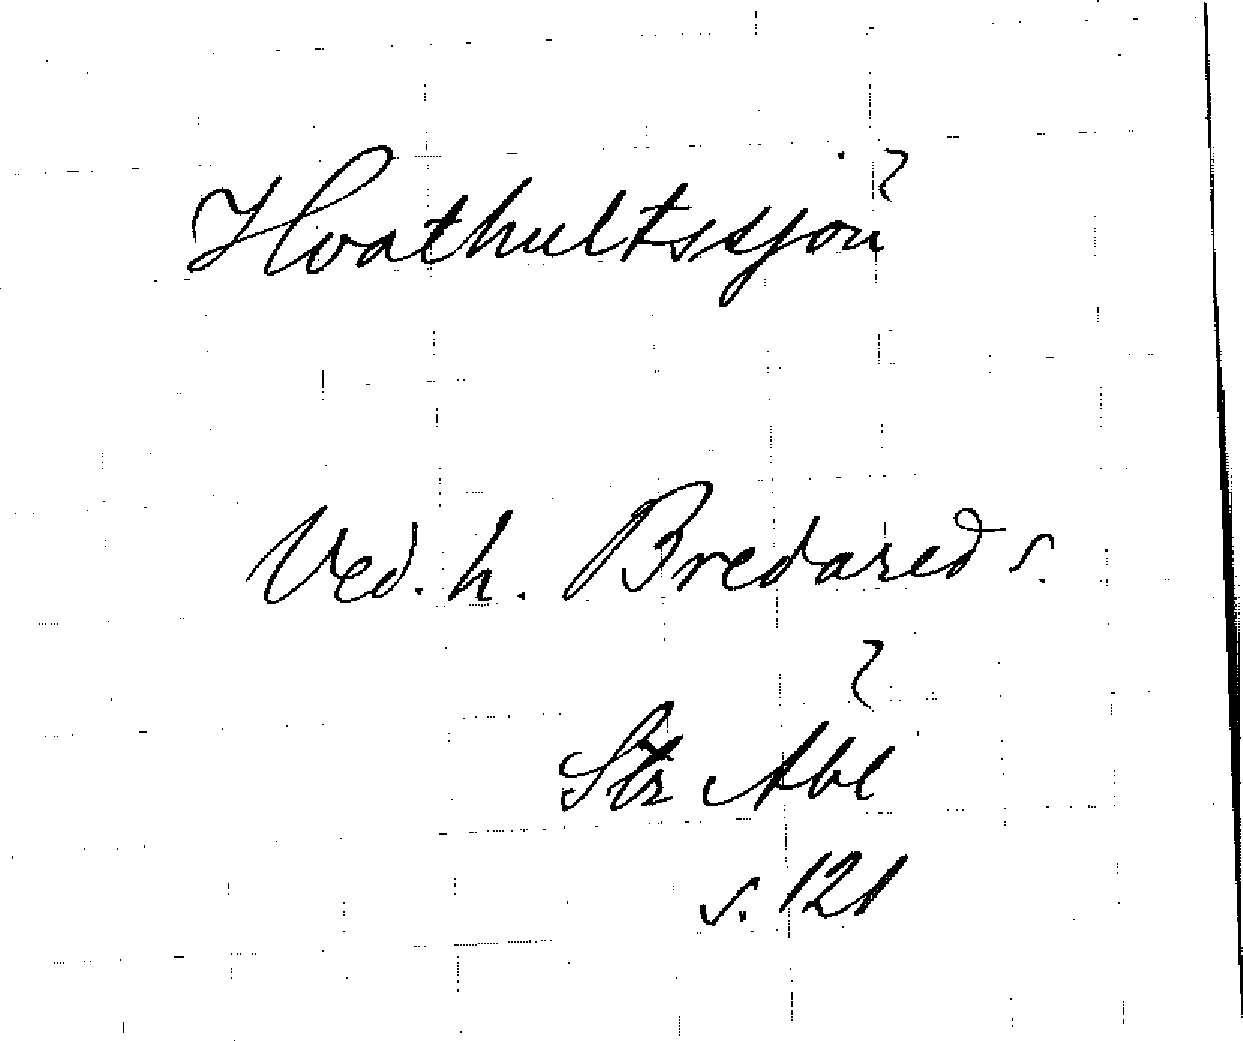 Hvathultssjön
Ved. h. Bredared s.
s. 121